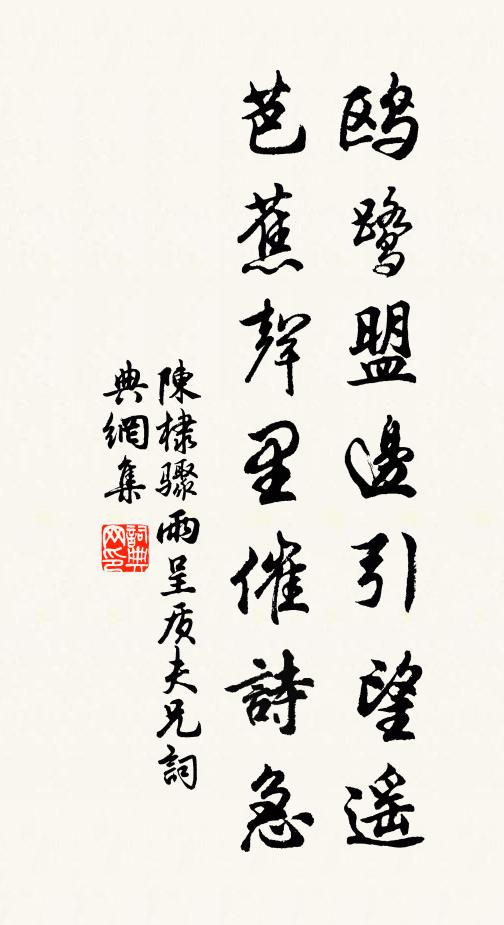 鸥鹭盟邊引望遥
芭蕉聲里催詩急
陳棣驟雨呈质夫兄詞
典網集
詞典网印